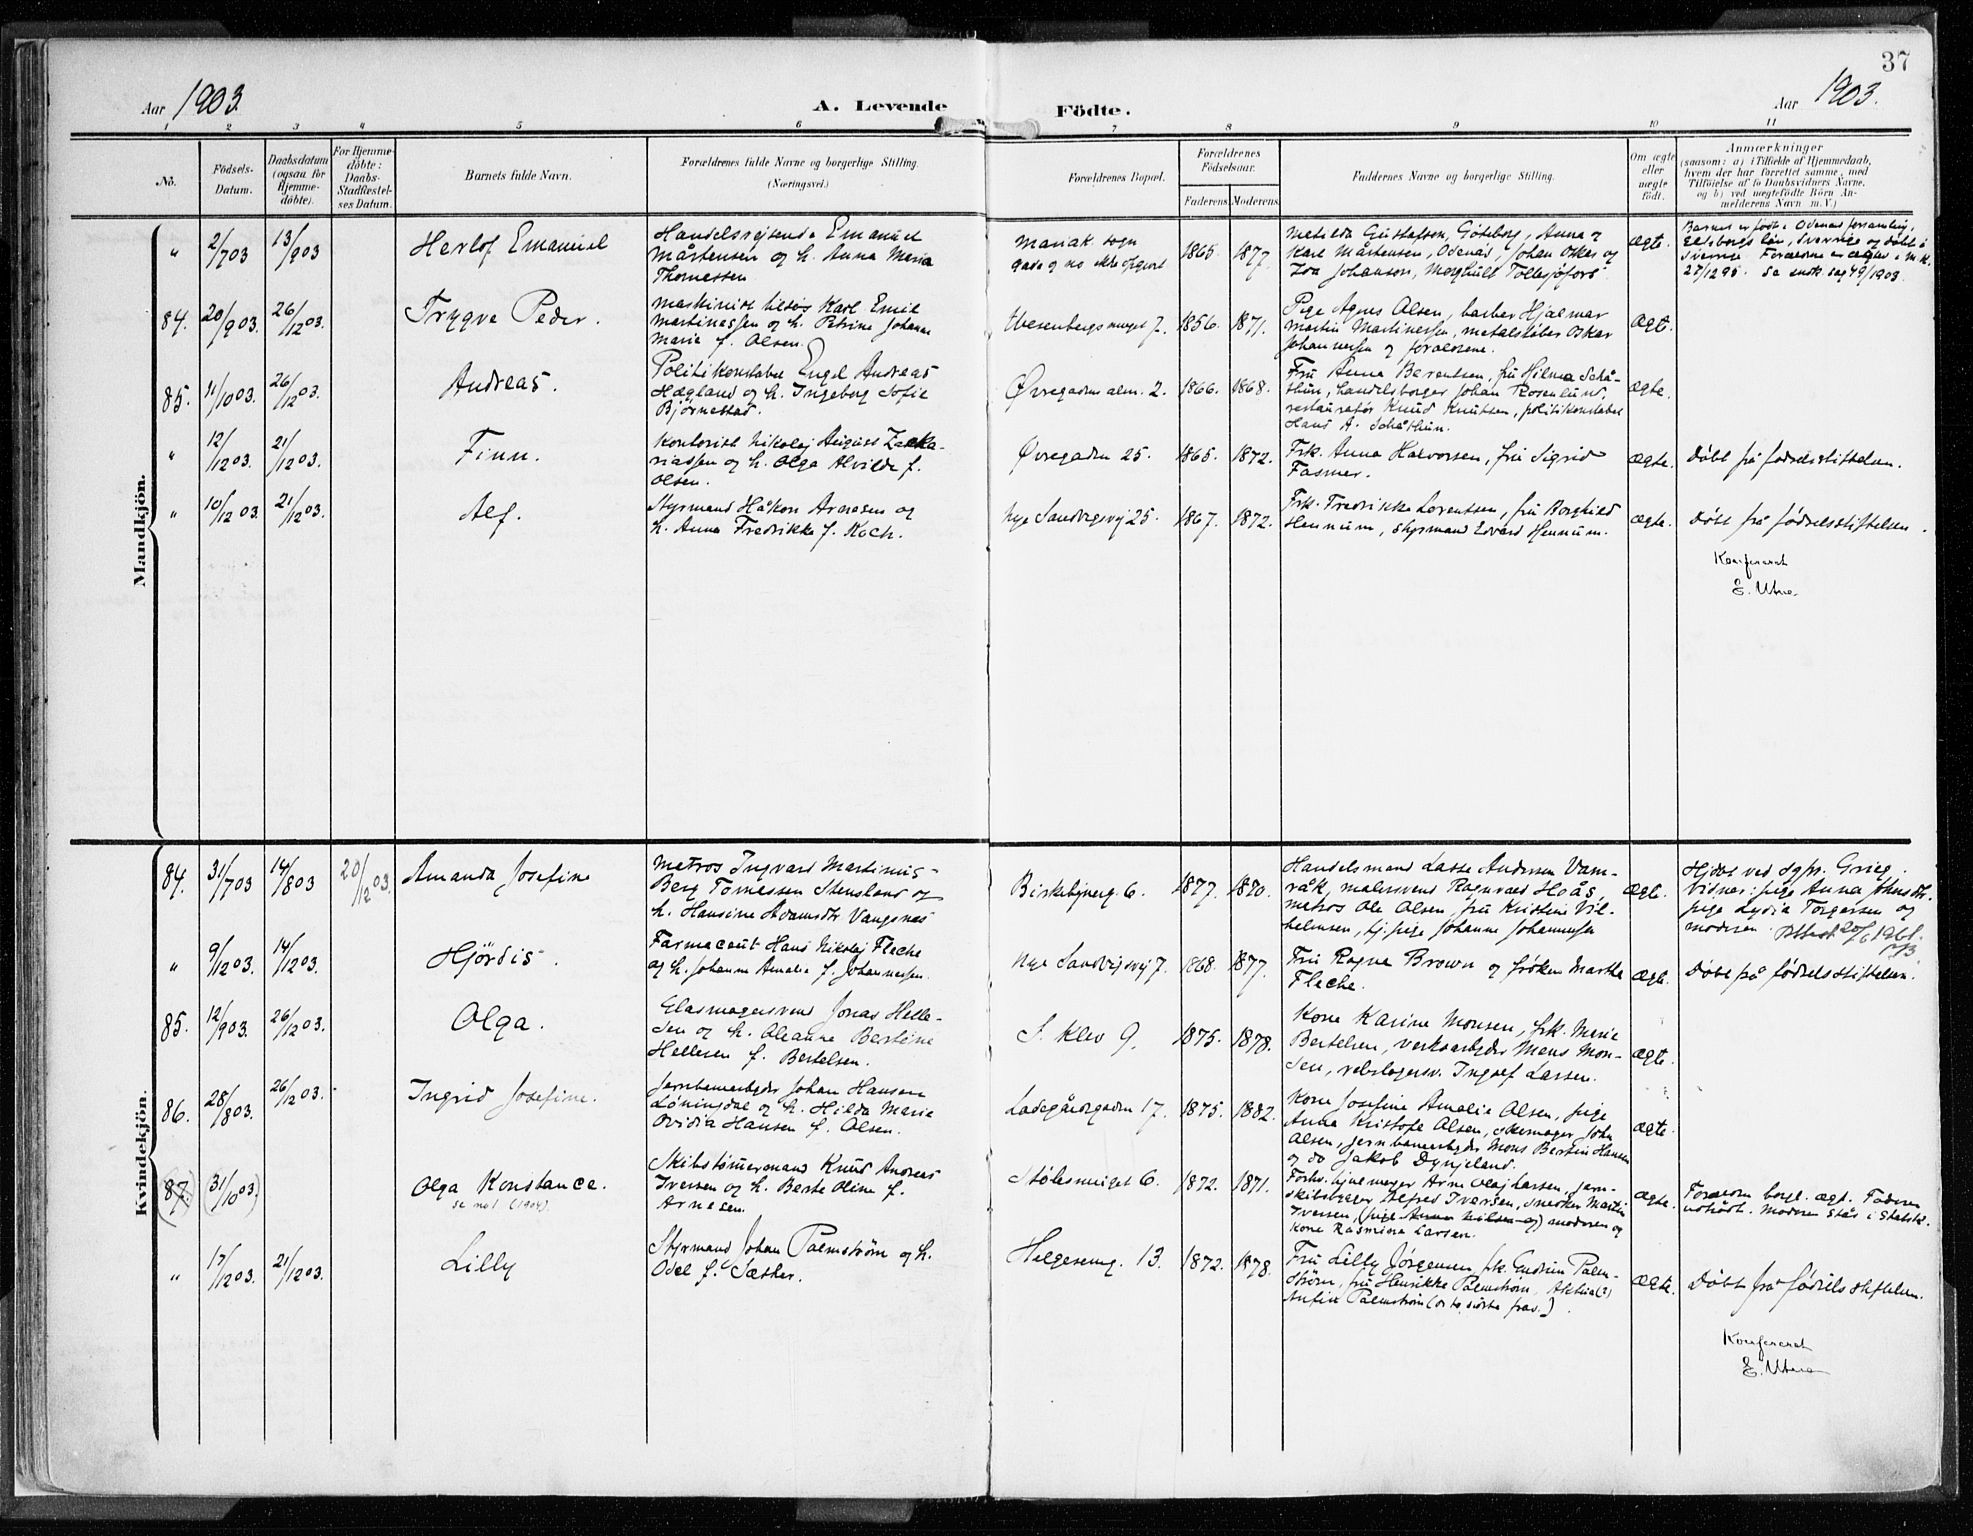 37
Aar 1903.
A. Levende Födte.
Aar 1903.
1 2 3 4 5 6 7 8 9 10 11
No.
Födsels-Datum.
Daabsdatum (ogsaa for Hjemme-döbte).
For Hjemme-döbte: Daabs-Stadfæstel-ses Datum.
Barnets fulde Navn.
Forældrenes fulde Navne og borgerlige Stilling.
(Næringsvei.)
Forældrenes Bopæl.
Forældrenes Födselsaar.
Faderens. Moderens.
Faddernes Navne og borgerlige Stilling.
Om ægte eller uægte födt.
Anmærkninger
(saasom: a) i Tilfælde af Hjemmedaab,
hvem der har forrettet samme, med
Tilföielse af to Daabsvidners Navne,
og b) ved uægtefödte Börn An-
melderens Navn m. V.)
Mandkjön.
" 2/7 03 13/9 03 Herlof Emanuel
Handelsrejsende Emanuel
Mårtensen og h. Anna Maria
Thomessen
Mariak. sogn
gade og no ikke opgivet
1865. 1877.
Matilda Gustafson, Göteborg, Anna og
Karl Mårtensen, Odenäs, Johan Oskar og
Zoa Johanson, Morghult Tollesjöfors
ægte.
Barnet er født i Odenäs forsamling,
Elfsborgs län, Sverrige og døbt i
Sverrige. Forældrene er ægtev. i M.K.
27/12 95. Se ensk. sag 49/1903.
84. 20/9 03. 26/12 03. Trygve Peder.
Maskinist tilsøs Karl Emil
Martinessen og h. Petrine Johanne
Marie f. Olsen.
Wesenbergsmuget 7. 1856. 1871.
Pige Agnes Olsen, barber Hjalmar
Martin Martinessen, metalstøber Oskar
Johannessen og forældrene.
ægte.
85. 11/10 03. 26/12 03. Andreas.
Politikonstabel Engel Andreas
Hægland og h. Ingeborg Sofie
Bjørnestad.
Øvregaden alm. 2. 1866. 1868.
Fru Anna Berentsen, fru Hilma Schå-
thun, handelsborger Johan Rosenlund,
restauratør Knud Knutsen, politikonstabel
Hans A. Schåthun.
ægte.
" 12/12 03. 21/12 03. Finn.
Kontorist Nikolaj August Zacka-
riassen og h. Olga Alvilde f.
Olsen.
Øvregaden 25. 1865. 1872.
Frk. Anna Halvorsen, fru Sigrid
Fasmer.
ægte.
Døbt på fødselsstiftelsen.
" 10/12 03. 21/12 03. Alf.
Styrmand Håkon Arnesen og
h. Anna Fredrikke f. Koch.
Nye Sandvigsvej 25. 1867. 1872.
Frk. Fredrikke Lorentsen, fru Borghild
Hennum, styrmand Edvard Hennum.
ægte.
Døbt på fødselsstiftelsen.
Konfereret
E. Utne.
Kvindekjön.
84. 31/7 03 14/8 03 20/12 03. Amanda Josefine
Matros Ingvard Martinius
Berg Tomessen Stensland og
h. Hansine Adamsdtr Vangsnes
Birkebjnerg. 6. 1877. 1880.
Handelsmand Lasse Andersen Vam-
råk, malersvend Ragnvald Hoås,
matros Ole Olsen, fru Kristine Vil-
helmsen, tj. pige Johanne Johannessen
ægte.
Hjdøbt ved sgpr. Grieg.
Vidner: pige Anna Johnsdtr.
pige Lydia Torgersen og
moderen. Attest 20/6 1961.
" 9/12 03. 14/12 03. Hjördis.
Farmaceut Hans Nikolaj Flecke
og h. Johanne Amalie f. Johannessen.
Nye Sandvigsvej 7. 1868. 1877.
Fru Ragna Brown og frøken Marthe
Flecke.
ægte.
Døbt på fødselsstiftelsen.
85. 12/9 03. 26/12 03. Olga.
Glasmagersvend Jonas Helle-
sen og h. Oleanne Bertine
Hellesen f. Bertelsen.
S. Klev 9. 1875. 1878.
Kone Karine Monsen, frk. Marie
Bertelsen, verksarbejder Mons Mon-
sen, rebslagersv. Ingolf Larsen.
ægte.
86. 28/8 03. 26/12 03. Ingrid Josefine.
Jernbanearbejder Johan Hansen
Löningdal og h. Hilda Marie
Ovidia Hansen f. Olsen.
Ladegårdsgaden 17. 1875. 1882.
Kone Josefine Amalie Olsen, pige
Anna Kristofa Olsen, skomager John
Olsen, jernbanearbejder Mons Bertin Hansen
og do Jakob Dyngeland.
ægte.
(87.) (31/10 03.) Olga Konstance.
se no 1 (1904).
Skibstømmermand Knud Andreas
Iversen og h. Berte Oline f.
Arnesen.
Stølesmuget 6. 1872. 1871.
Forhv. tjenemager Arne Olaj Larsen, jern-
skibsbygger Alfred Iversen, snedker Martin
Iversen, (pige Anna Nilsen og) moderen og
kone Rasmine Larsen.
ægte.
Forældre borgl. ægt. Faderen
udtrådt. Moderen står i Statsk.
" 17/12 03. 21/12 03. Lilly
Styrmand Johan Palmstrøm og h.
Odel f. Sæther.
Helgesensg. 13. 1872. 1878.
Fru Lilly Jørgensen, frk. Gudrun Palm-
strøm, fru Henrikke Palmstrøm,
Palmstrøm (de to sidste frav.).
ægte.
Døbt på fødselsstiftelsen.
Konfereret
E. Utne